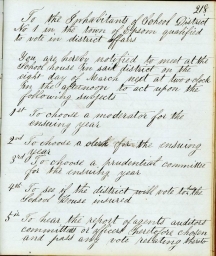 218
To the Inhabitants of School District
No 1 in the town of Epsom qualified
to vote in district affairs
You are hereby notified to meet at the
School house in said district on the
eight day of March next at two o'clock
in the afternoon to act upon the
following subjects
1st To choose a moderator for the
ensuing year
2nd To choose a clerk for the ensuing
year
3rd To choose a prudential committee
for the ensuing year
4th To see if the district will vote to
School House insured
5th To hear the report of agents auditors
committees or officers heretofore chosen
and pass any vote relating thereto